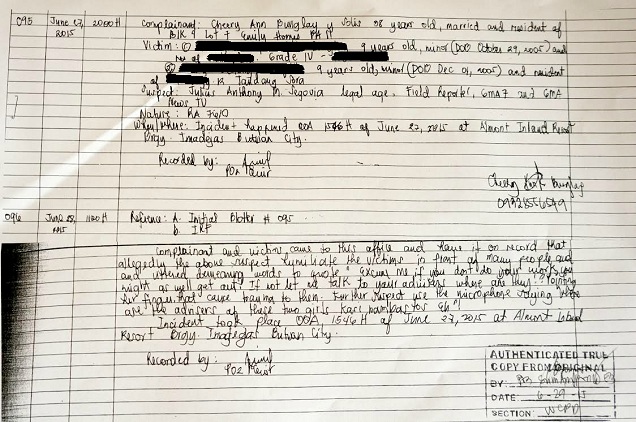 095 June 27, 2015 2000H Complainant: Cherry Ann Bunglay y Solis 38 years old, married and resident of
Blk 4 Lot 7 Emily Homes
Victim: ① 9 years old, minor (DOB October 29, 2005) and
Grade IV -
② 9 years old, minor (DOB Dec 01, 2005) and resident
of
Suspect: Julius Anthony M. Segovia legal age, Field Reporter, GMA7 and GMA
News TV
Nature: RA 7610
When/Where: Incident happened OOA 1546H of June 27, 2015 at Almont Inland Resort
Brgy. Imadejas Butuan City.
Recorded by:
PO2
096 June 28, 2015 1100H Reference: A. Initial Blotter # 095
B. IRF
Complainant and victims came to this office and have it on record that
allegedly the above suspect humiliate the victims in front of many people and
and uttered demeaning words to quote "Excuse me if you don't do your work, you
might as well get out! If not let me talk to your advisers where are they?" Pointing
her finger that cause trauma to them. Further suspect use the microphone saying
are the advisers of these two girls kasi
Incident took place OOA, 1546H of June 27, 2015 at Almont Inland
Resort Brgy. Imadejas Butuan City.
Recorded by:
PO2
AUTHENTICATED TRUE
COPY FROM ORIGINAL
BY:
DATE: 6-29-15
SECTION: WCPD